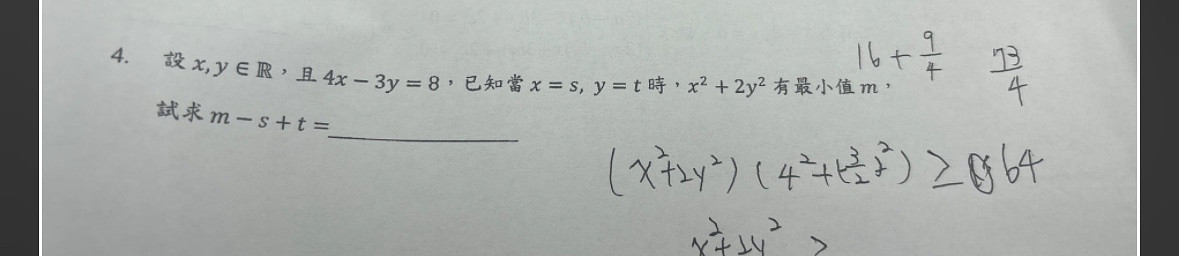 4. 設 x, y ∈ ℝ，且 4x − 3y = 8，已知當 x = s, y = t 時，x² + 2y² 有最小值 m，
試求 m − s + t =
16 + 9/4 73/4
(x²+2y²)(4²+(-3/2)²) ≥ 64
x²+2y² ≥